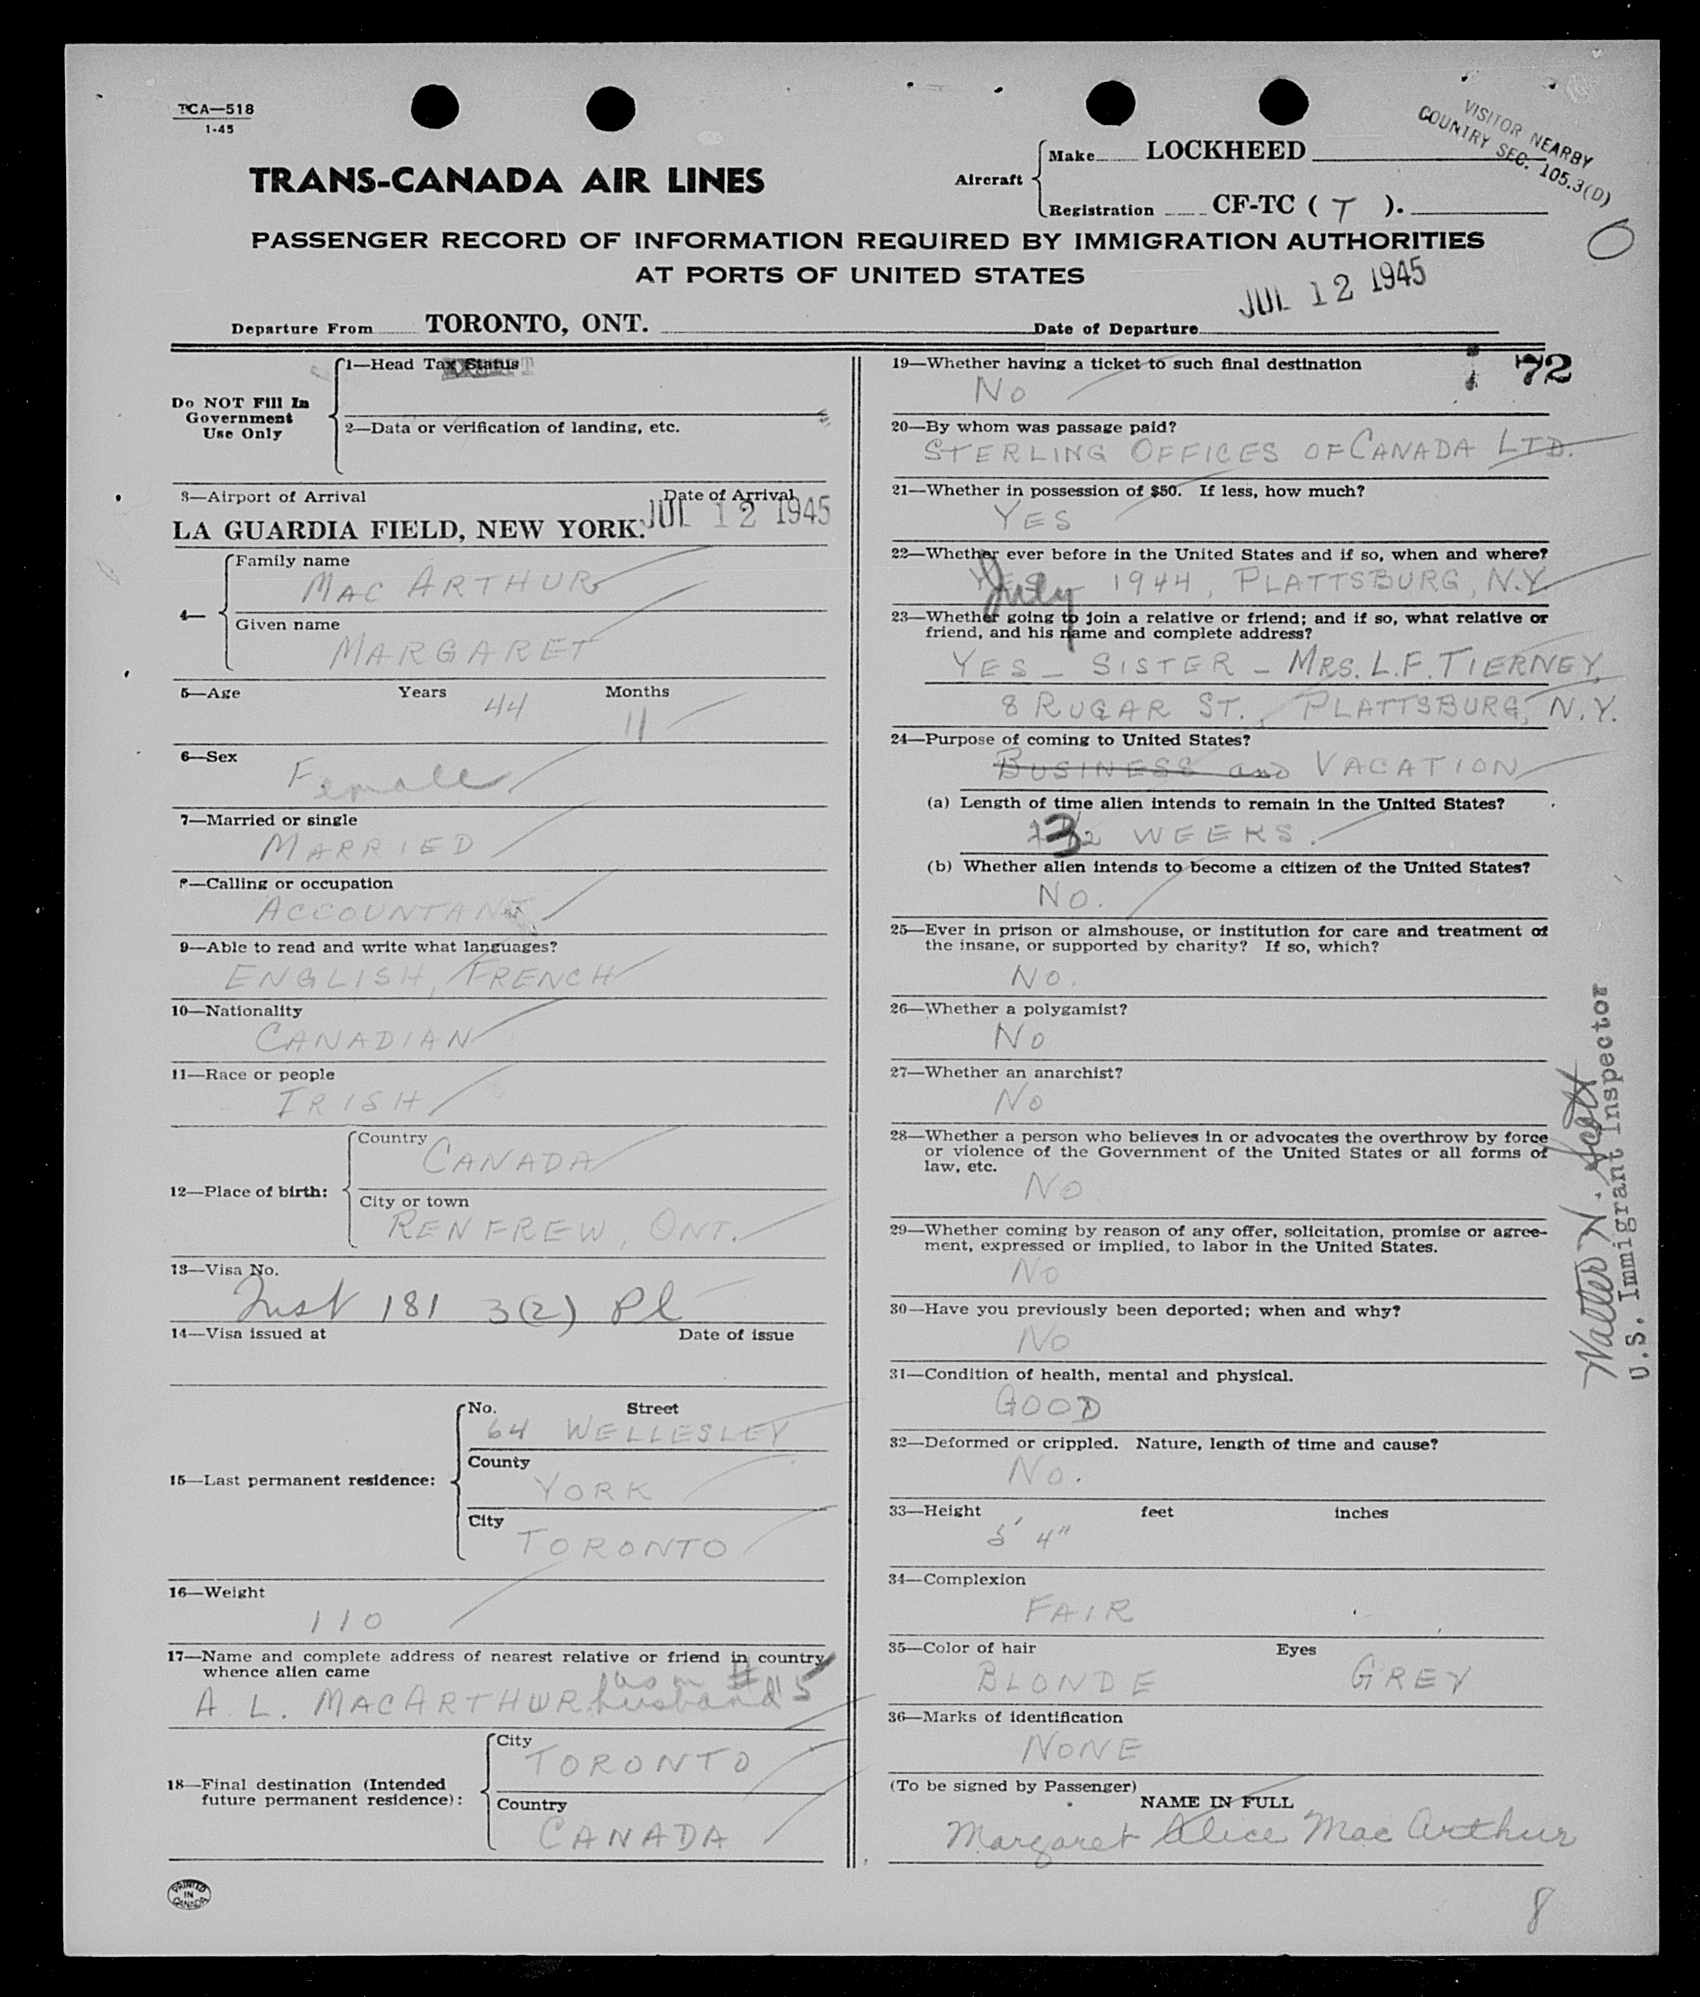 TCA—518
1-45
VISITOR NEARBY
COUNTRY SEC. 105.3(D)
TRANS-CANADA AIR LINES
Aircraft
Make LOCKHEED
Registration CF-TC ( T ).
PASSENGER RECORD OF INFORMATION REQUIRED BY IMMIGRATION AUTHORITIES
AT PORTS OF UNITED STATES
JUL 12 1945
Departure From TORONTO, ONT. Date of Departure
Do NOT Fill In
Government
Use Only
1—Head Tax Status
2—Data or verification of landing, etc.
3—Airport of Arrival Date of Arrival
LA GUARDIA FIELD, NEW YORK. JUL 12 1945
4—
Family name
MAC ARTHUR
Given name
MARGARET
5—Age Years 44 Months 11
6—Sex
Female
7—Married or single
MARRIED
8—Calling or occupation
ACCOUNTANT
9—Able to read and write what languages?
ENGLISH, FRENCH
10—Nationality
CANADIAN
11—Race or people
IRISH
12—Place of birth:
Country
CANADA
City or town
RENFREW, ONT.
13—Visa No.
Inst 181 3(2) Pl
14—Visa issued at Date of issue
15—Last permanent residence:
No. Street
64 WELLESLEY
County
YORK
City
TORONTO
16—Weight
110
17—Name and complete address of nearest relative or friend in country
whence alien came
A. L. MACARTHUR husband
as in # 15
18—Final destination (Intended
future permanent residence):
City
TORONTO
Country
CANADA
PRINTED
IN
CANADA
19—Whether having a ticket to such final destination
72
No
20—By whom was passage paid?
STERLING OFFICES OF CANADA LTD.
21—Whether in possession of $50. If less, how much?
YES
22—Whether ever before in the United States and if so, when and where?
YES July 1944, PLATTSBURG, N.Y.
23—Whether going to join a relative or friend; and if so, what relative or
friend, and his name and complete address?
YES - SISTER - MRS. L.F. TIERNEY,
8 RUGAR ST., PLATTSBURG, N.Y.
24—Purpose of coming to United States?
BUSINESS and VACATION
(a) Length of time alien intends to remain in the United States?
3 WEEKS.
(b) Whether alien intends to become a citizen of the United States?
NO.
25—Ever in prison or almshouse, or institution for care and treatment of
the insane, or supported by charity? If so, which?
NO.
26—Whether a polygamist?
NO
27—Whether an anarchist?
NO
28—Whether a person who believes in or advocates the overthrow by force
or violence of the Government of the United States or all forms of
law, etc.
NO
29—Whether coming by reason of any offer, solicitation, promise or agree-
ment, expressed or implied, to labor in the United States.
NO
30—Have you previously been deported; when and why?
NO
31—Condition of health, mental and physical.
GOOD
32—Deformed or crippled. Nature, length of time and cause?
NO.
33—Height feet inches
5' 4"
34—Complexion
FAIR
35—Color of hair Eyes
BLONDE GREY
36—Marks of identification
NONE
(To be signed by Passenger)
NAME IN FULL
Margaret Alice Mac Arthur
8
Walter N. Scott
U.S. Immigrant Inspector